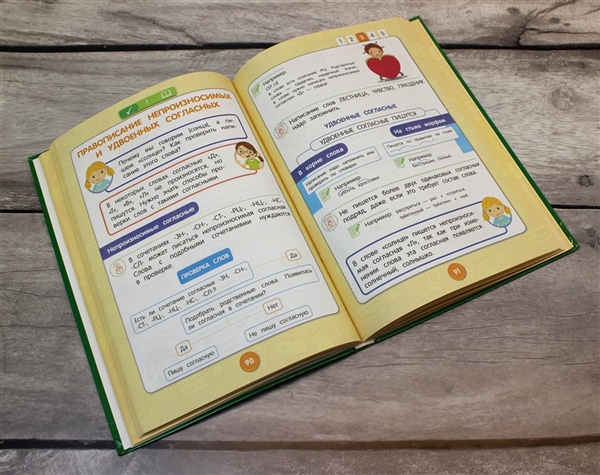 ПРАВОПИСАНИЕ НЕПРОИЗНОСИМЫХ
И УДВОЕННЫХ СОГЛАСНЫХ
Почему мы говорим [сонцэ], а пи-
шем «солнце»? Как проверить напи-
сание этого слова?
В некоторых словах согласные «Д»,
«В», «Т», «Л» не произносятся, но
пишутся. Нужно знать способы про-
верки слов с такими согласными.
Непроизносимые согласные
В сочетаниях -ЗН-, -СН-, -СТ-, -РЦ-, -НЦ-, -НС-,
-СЛ- может писаться непроизносимая согласная.
Слова с подобными сочетаниями нуждаются
в проверке.
ПРОВЕРКА СЛОВ
Да
Есть ли сочетание согласных -ЗН-, -СН-,
-СТ-, -РЦ-, -НЦ-, -НС-, -СЛ-?
Подобрать родственные слова. Появилась
ли согласная в сочетании?
Да
Нет
Пишу согласную
Не пишу согласную
90
1 2 3 4 5
Например:
Написание слов ЛЕСТНИЦА, ЧУВСТВО, ПРАЗДНИК
надо запомнить.
УДВОЕННЫЕ СОГЛАСНЫЕ
УДВОЕННЫЕ СОГЛАСНЫЕ ПИШУТСЯ
В корне слова
На стыке морфем
Написание надо запомнить или
проверить по словарю
Например:
суббота, кроссовки
Например:
Не пишется более двух одинаковых согласных
подряд, даже если это требует состав слова.
Например:
В слове «солнце» пишется непроизноси-
мая согласная «Л», так как при изме-
нении слова эта согласная появляется:
солнечный, солнышко.
91